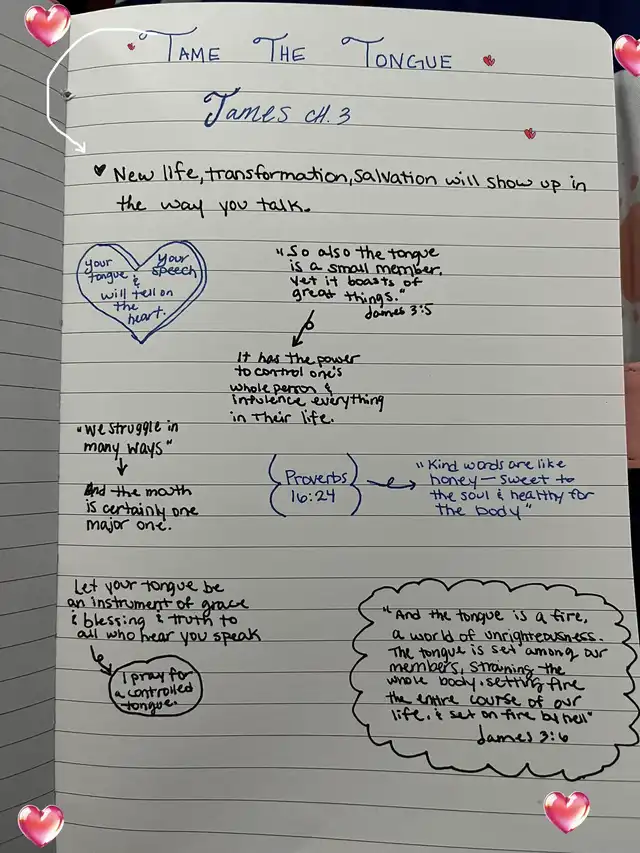 TAME THE TONGUE
James CH. 3
New life, transformation, salvation will show up in
the way you talk.
your your
tongue & speech
will tell on
the
heart.
"So also the tongue
is a small member,
yet it boasts of
great things."
James 3:5
It has the power
to control one's
whole person &
influence everything
in their life.
"We struggle in
many ways"
And the mouth
is certainly one
major one.
Proverbs
16:24
"Kind words are like
honey—sweet to
the soul & healthy for
the body"
Let your tongue be
an instrument of grace
& blessing & truth to
all who hear you speak
I pray for
a controlled
tongue.
"And the tongue is a fire,
a world of unrighteousness.
The tongue is set among our
members, straining the
whole body, setting fire
the entire course of our
life, & set on fire by hell"
James 3:6